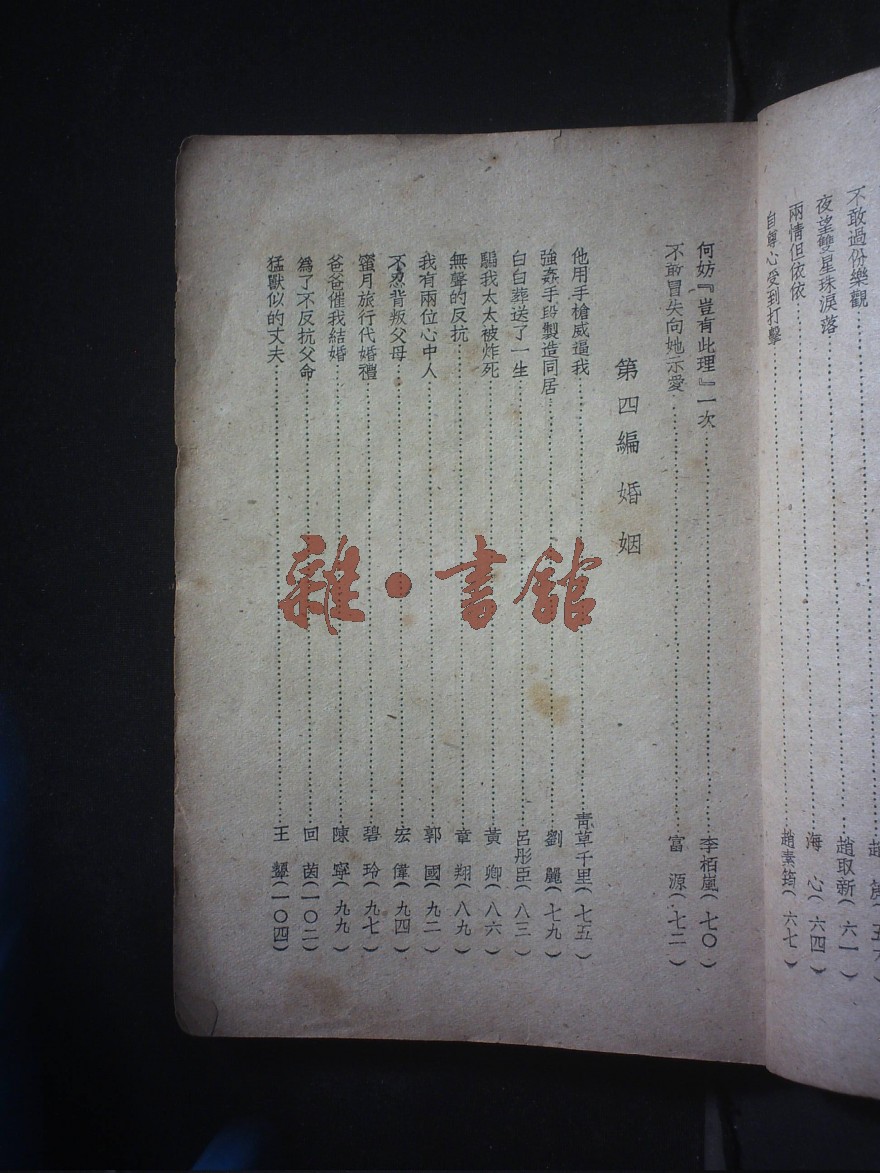 不敢過份樂觀
夜望雙星珠淚落……趙取新(六一)
兩情但依依……海 心(六四)
自尊心受到打擊……趙素筠(六七)
何妨『豈有此理』一次……李栢嵐(七〇)
不敢冒失向她示愛……富 源(七二)
第四編 婚姻
他用手槍威逼我……靑草千里(七五)
強姦手段製造同居……劉 麗(七九)
白白葬送了一生……呂彤臣(八三)
騙我太太被炸死……黃 卿(八六)
無聲的反抗……章 翔(八九)
我有兩位心中人……郭 國(九二)
不忍背叛父母……宏 偉(九四)
蜜月旅行代婚禮……碧 玲(九七)
爸爸催我結婚……陳 寧(九九)
爲了不反抗父命……回 茵(一〇二)
猛獸似的丈夫……王 顰(一〇四)
雜·書館